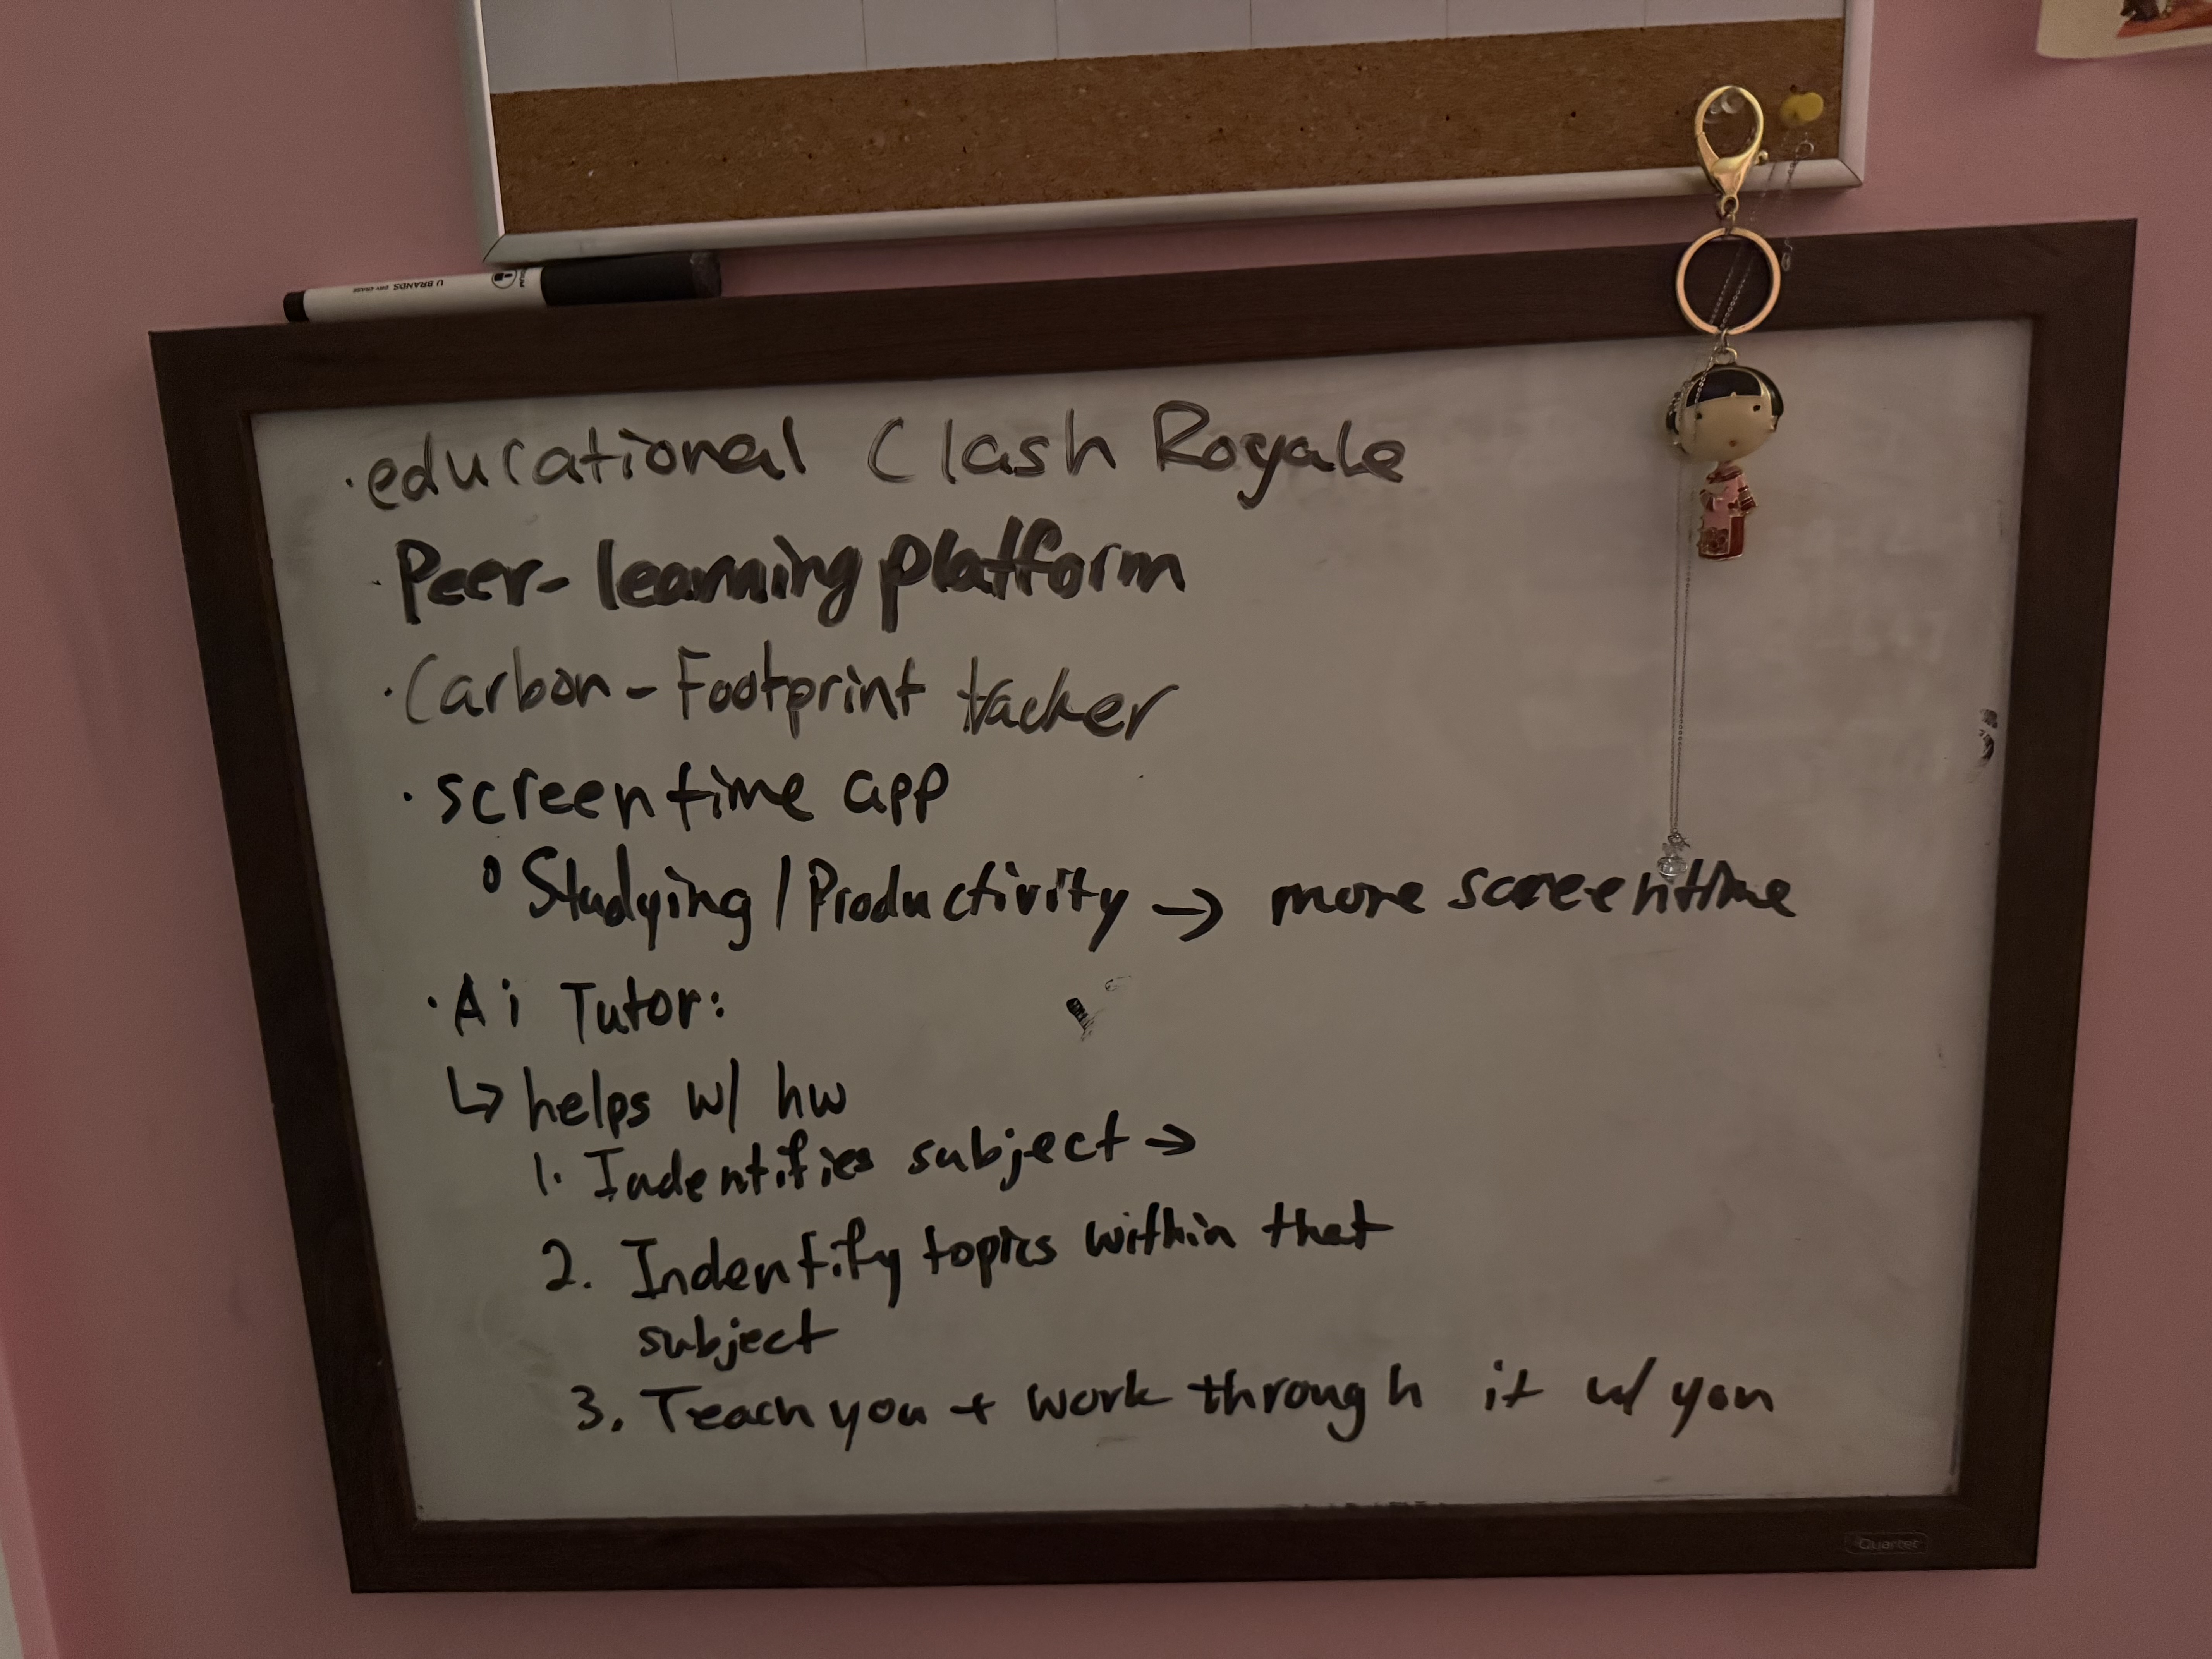 U BRANDS DRY ERASE
·educational Clash Royale
·Peer-learning platform
·Carbon-Footprint tracker
·screentime app
o Studying/Productivity → more screentime
·Ai Tutor:
↳ helps w/ hw
1. Indentifies subject →
2. Indentify topics within that
subject
3. Teach you + work through it w/ you
Quartet